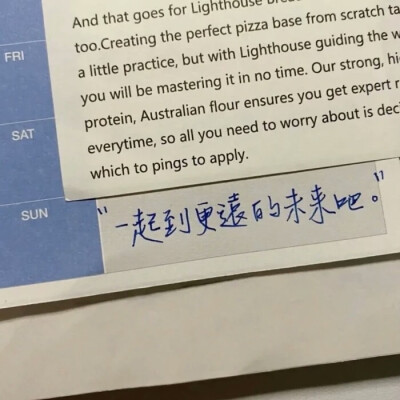 And that goes for Lighthouse
too.Creating the perfect pizza base from scratch ta
FRI
a little practice, but with Lighthouse guiding the w
you will be mastering it in no time. Our strong, hi
protein, Australian flour ensures you get expert r
SAT
everytime, so all you need to worry about is deci
which to pings to apply.
SUN
“一起到更遠的未来吧。”